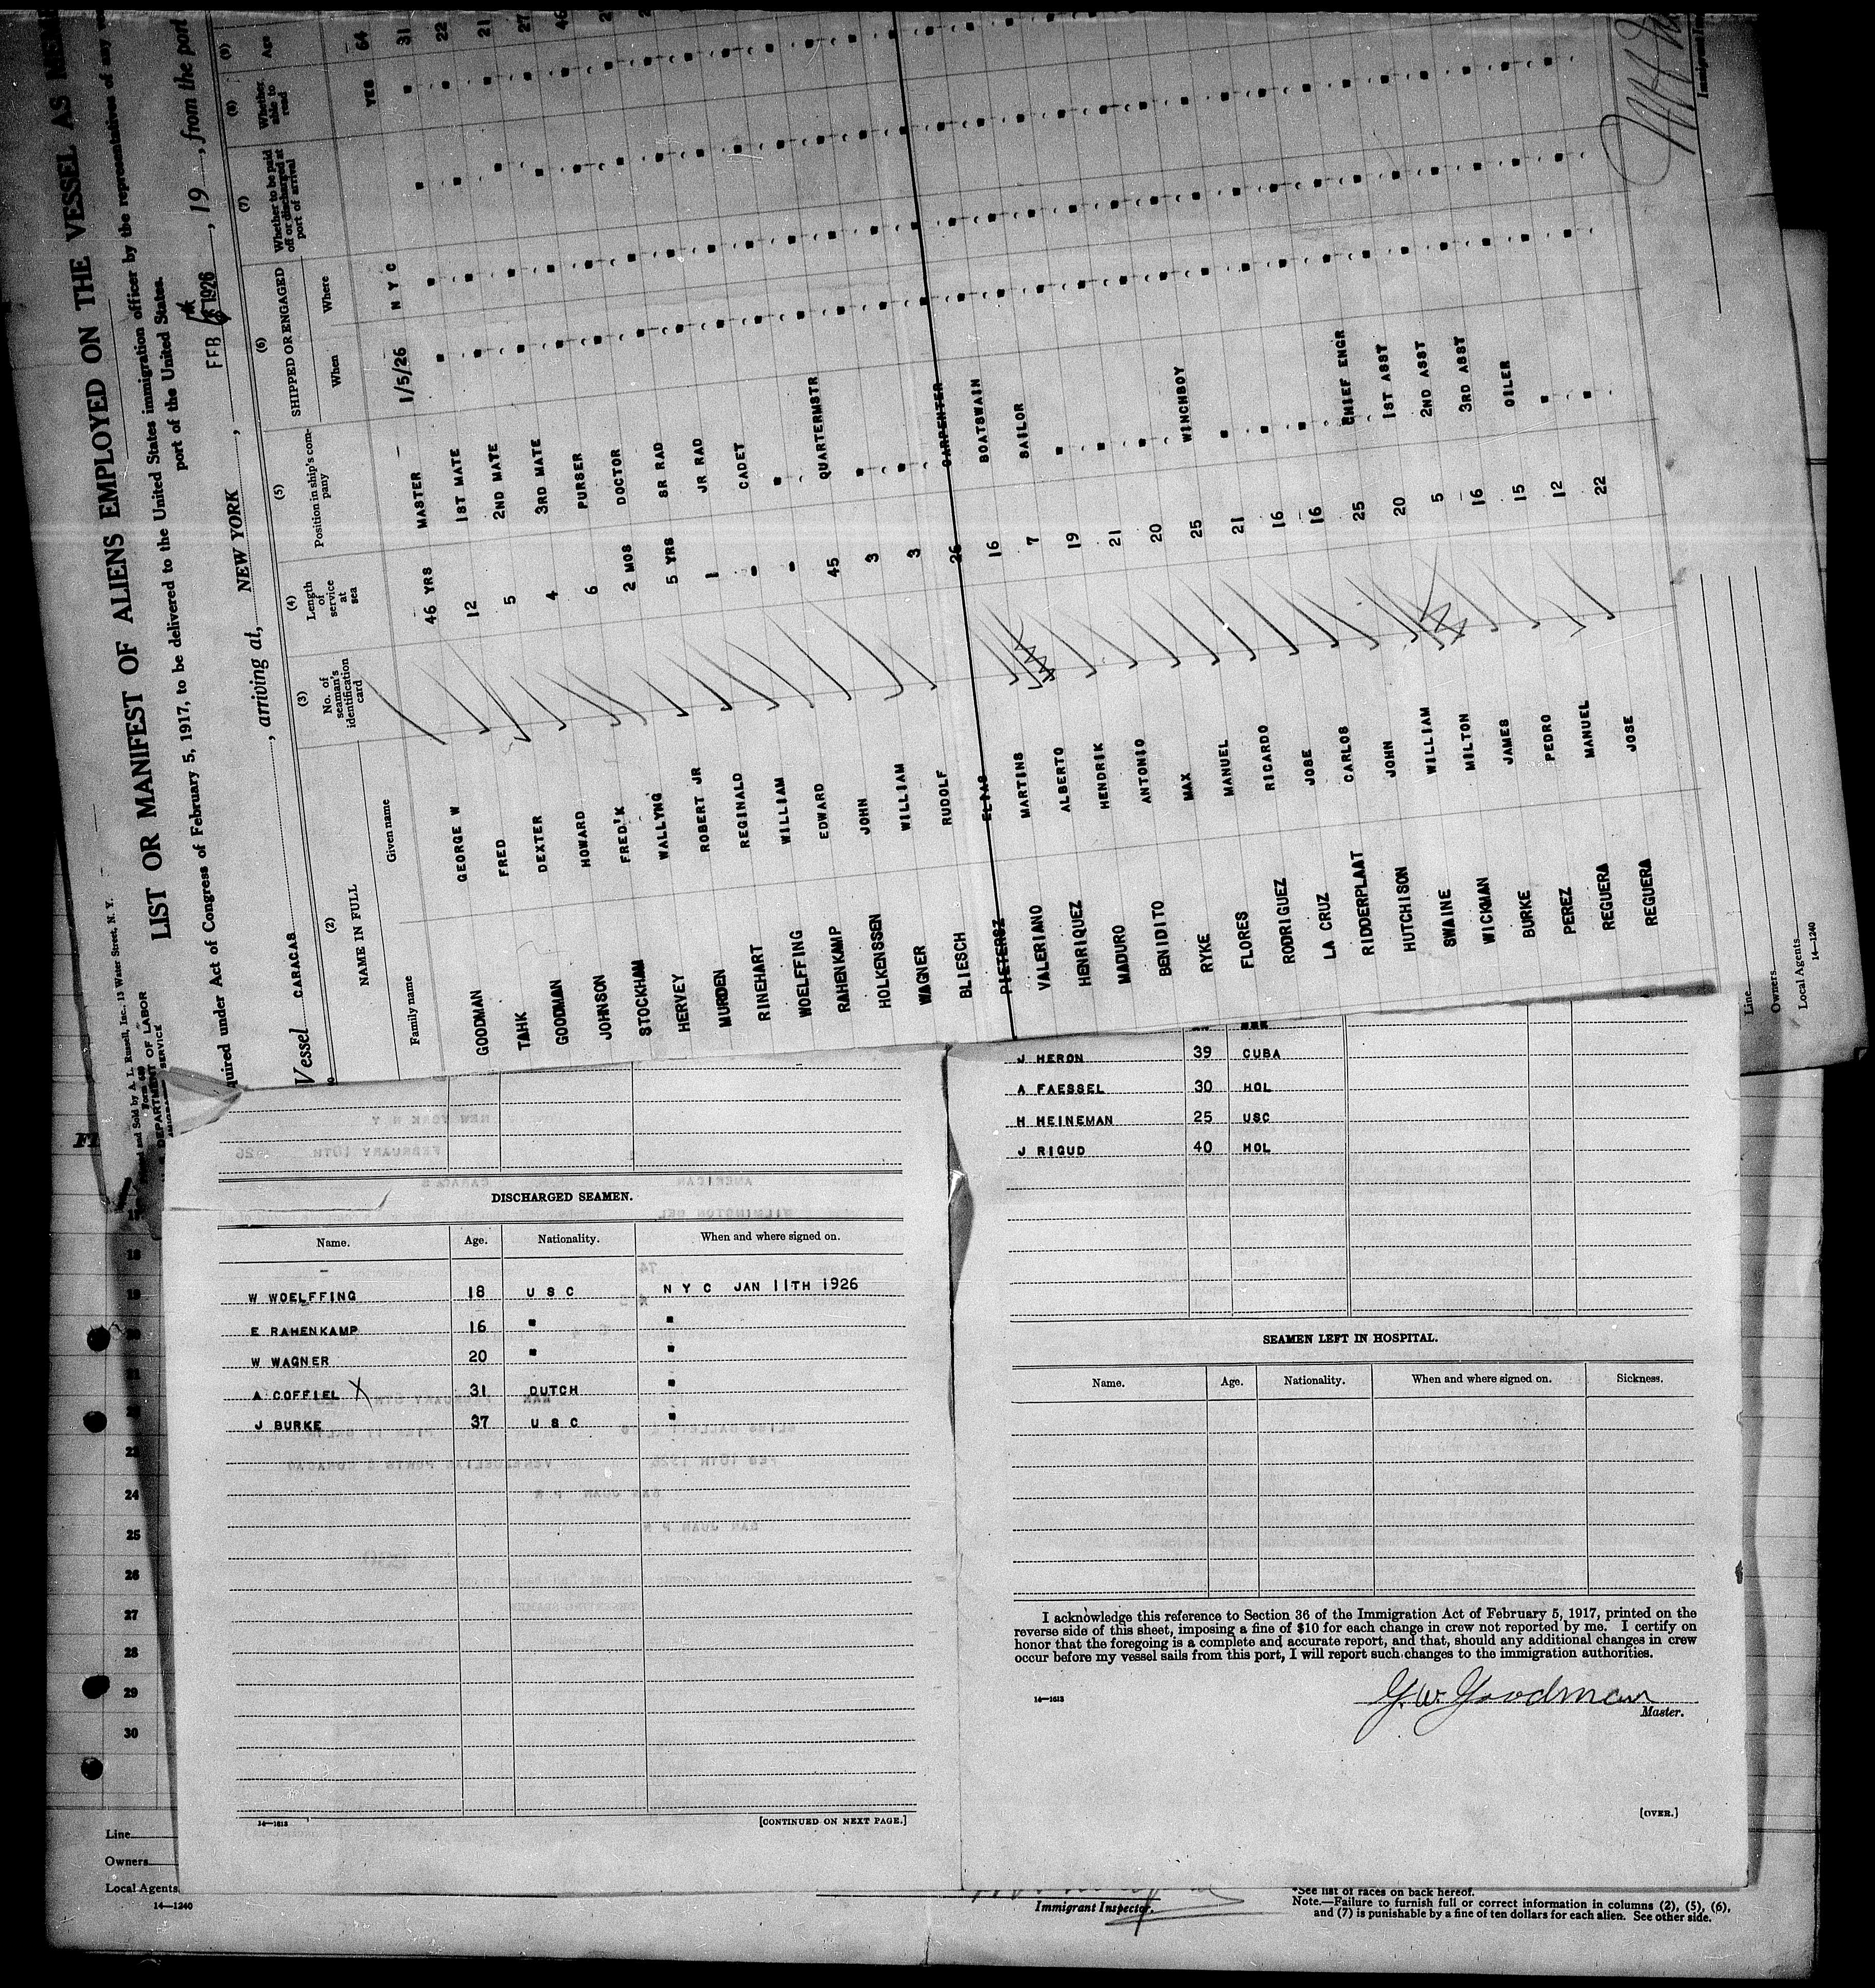 and Sold by A. L. Russell, Inc., 13 Water Street, N. Y.
DEPARTMENT OF LABOR
SERVICE
LIST OR MANIFEST OF ALIENS EMPLOYED ON THE VESSEL AS
quired under Act of Congress of February 5, 1917, to be delivered to the United States immigration officer by the representatives of any
port of the United States.
Vessel CARACAS, arriving at, NEW YORK, FEB 1926, 19, from the port
(2) (3) (4) (5) (6) (7) (8) (9)
NAME IN FULL No. of seaman's identification card Length of service at sea Position in ship's company SHIPPED OR ENGAGED Whether to be paid off or discharged at port of arrival Whether able to read Age
Family name Given name When Where
GOODMAN GEORGE W 46 YRS MASTER 1/5/26 N Y C YES 64
TAHK FRED 12 1ST MATE " " " " 31
GOODMAN DEXTER 5 2ND MATE " " " " 22
JOHNSON HOWARD 4 3RD MATE " " " " 21
STOCKHAM FRED'K 6 PURSER " " " " 27
HERVEY WALLYNG 2 MOS DOCTOR " " " " 46
MURDEN ROBERT JR 5 YRS SR RAD " " " "
RINEHART REGINALD 1 JR RAD " " " "
WOELFFING WILLIAM " CADET " " " "
RAHENKAMP EDWARD " " " " " "
HOLKENSSEN JOHN 45 QUARTERMSTR " " " "
WAGNER WILLIAM 3 " " " " "
BLIESCH RUDOLF 3 " " " " "
PIETERSZ ELIAS 26 CARPENTER " " " "
VALERIANO MARTINS 16 BOATSWAIN " " " "
HENRIQUEZ ALBERTO 7 SAILOR " " " "
MADURO HENDRIK 19 " " " " "
BENIDITO ANTONIO 21 " " " " "
RYKE MAX 20 " " " " "
FLORES MANUEL 25 WINCHBOY " " " "
RODRIGUEZ RICARDO 21 " " " " "
LA CRUZ JOSE 16 " " " " "
RIDDERPLAAT CARLOS 16 " " " " "
HUTCHISON JOHN 25 CHIEF ENGR " " " "
SWAINE WILLIAM 20 1ST ASST " " " "
WICKMAN MILTON 5 2ND ASST " " " "
BURKE JAMES 16 3RD ASST " " " "
PEREZ PEDRO 15 OILER " " " "
REGUERA MANUEL 12 " " " " "
REGUERA JOSE 22 " " " " "
Line
Owners
Local Agents
14—1240
DISCHARGED SEAMEN.
Name. Age. Nationality. When and where signed on.
W WOELFFING 18 U S C N Y C JAN 11TH 1926
E RAHENKAMP 16 " "
W WAGNER 20 " "
A COFFIEL X 31 DUTCH "
J BURKE 37 U S C "
14—1613
[CONTINUED ON NEXT PAGE.]
J HERON 39 CUBA
A FAESSEL 30 HOL
H HEINEMAN 25 USC
J RIGUD 40 HOL
SEAMEN LEFT IN HOSPITAL.
Name. Age. Nationality. When and where signed on. Sickness.
I acknowledge this reference to Section 36 of the Immigration Act of February 5, 1917, printed on the
reverse side of this sheet, imposing a fine of $10 for each change in crew not reported by me. I certify on
honor that the foregoing is a complete and accurate report, and that, should any additional changes in crew
occur before my vessel sails from this port, I will report such changes to the immigration authorities.
G. W. Goodman
14—1613
Master.
[OVER.]
18
19
20
21
23
24
25
26
27
28
29
30
Line
Owners
Local Agents
14—1240
Immigrant Inspector.
*See list of races on back hereof.
Note.—Failure to furnish full or correct information in columns (2), (5), (6),
and (7) is punishable by a fine of ten dollars for each alien. See other side.